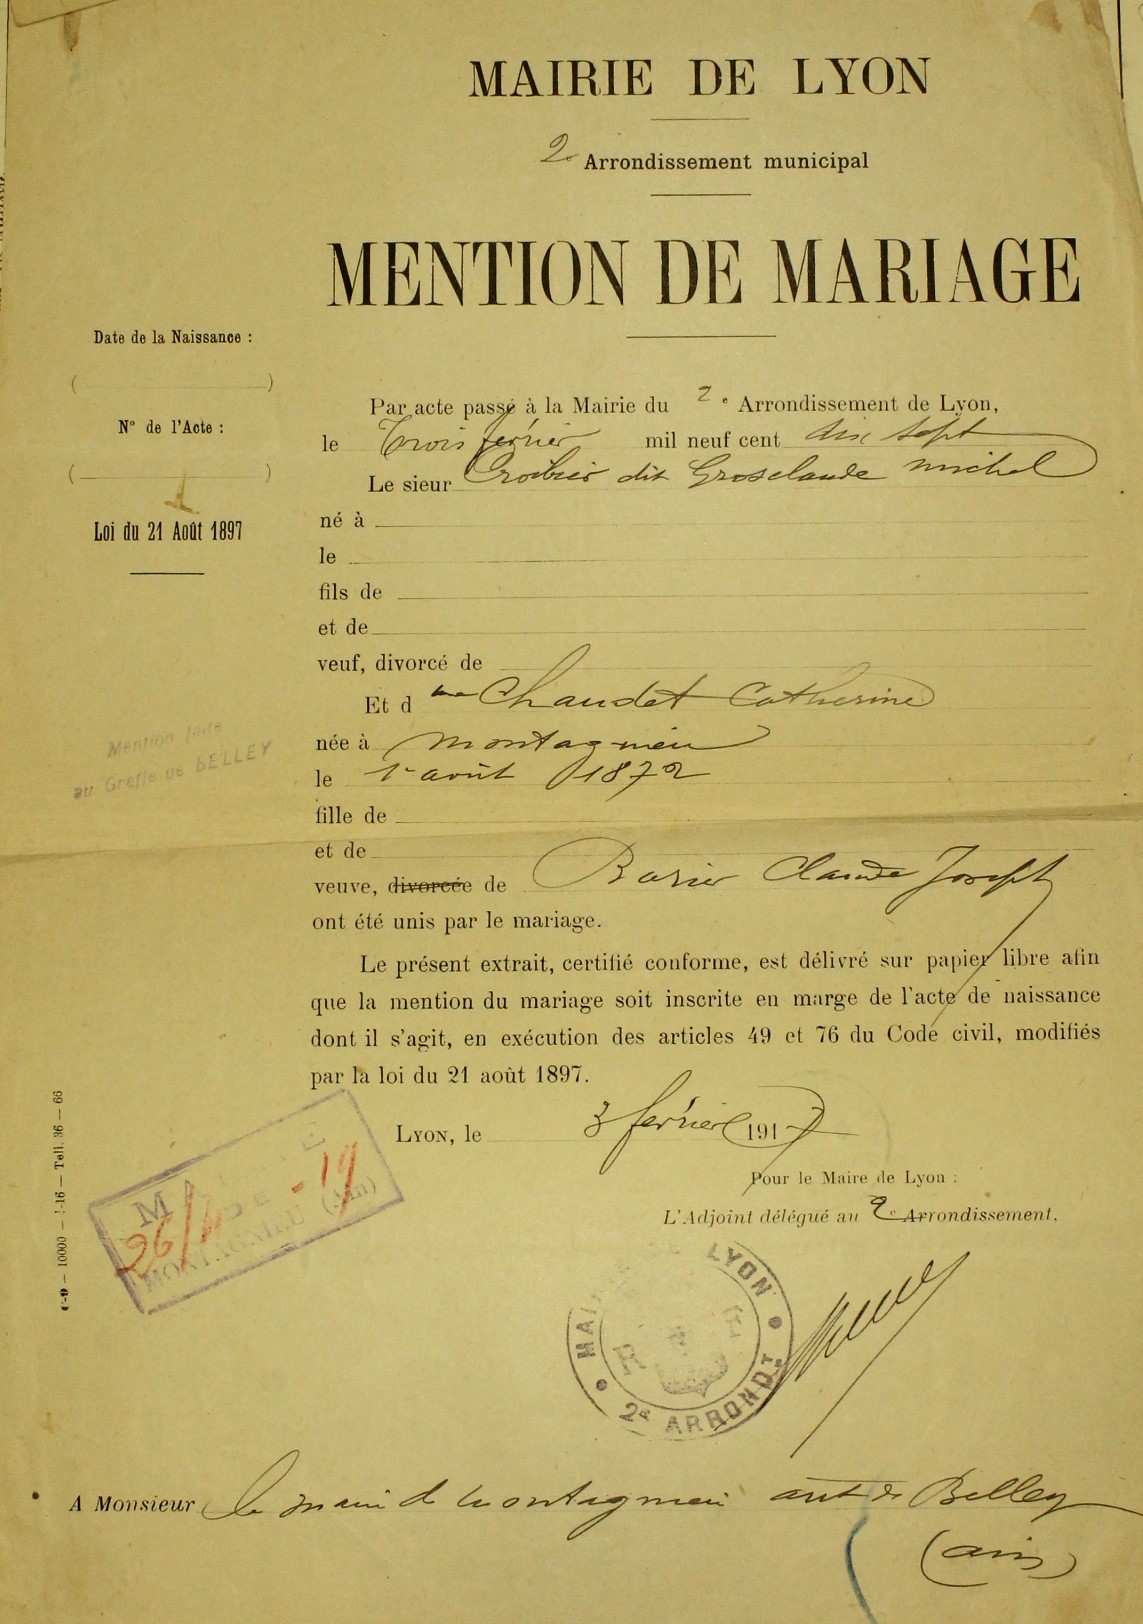 MAIRIE DE LYON
2e Arrondissement municipal
MENTION DE MARIAGE
Date de la Naissance :
( )
N° de l'Acte :
( )
Loi du 21 Août 1897
Par acte passé à la Mairie du 2e Arrondissement de Lyon,
le Trois février mil neuf cent dix sept
Le sieur Croibier dit Groselaude michel
né à
le
fils de
et de
veuf, divorcé de
Et d me Chaudet Catherine
née à montagnieu
le 1er août 1872
fille de
et de
veuve, divorcée de Claude Joseph
ont été unis par le mariage.
Le présent extrait, certifié conforme, est délivré sur papier libre afin
que la mention du mariage soit inscrite en marge de l'acte de naissance
dont il s'agit, en exécution des articles 49 et 76 du Code civil, modifiés
par la loi du 21 août 1897.
Lyon, le 3 février 1917
Pour le Maire de Lyon :
L'Adjoint délégué au 2e Arrondissement.
Mention faite
au Greffe de BELLEY
MAIRIE
DE
MONTAGNIEU (Ain)
MAIRIE DE LYON
2e ARRONDT
A Monsieur le maire de montagnieu arrt de Belley
(ain)